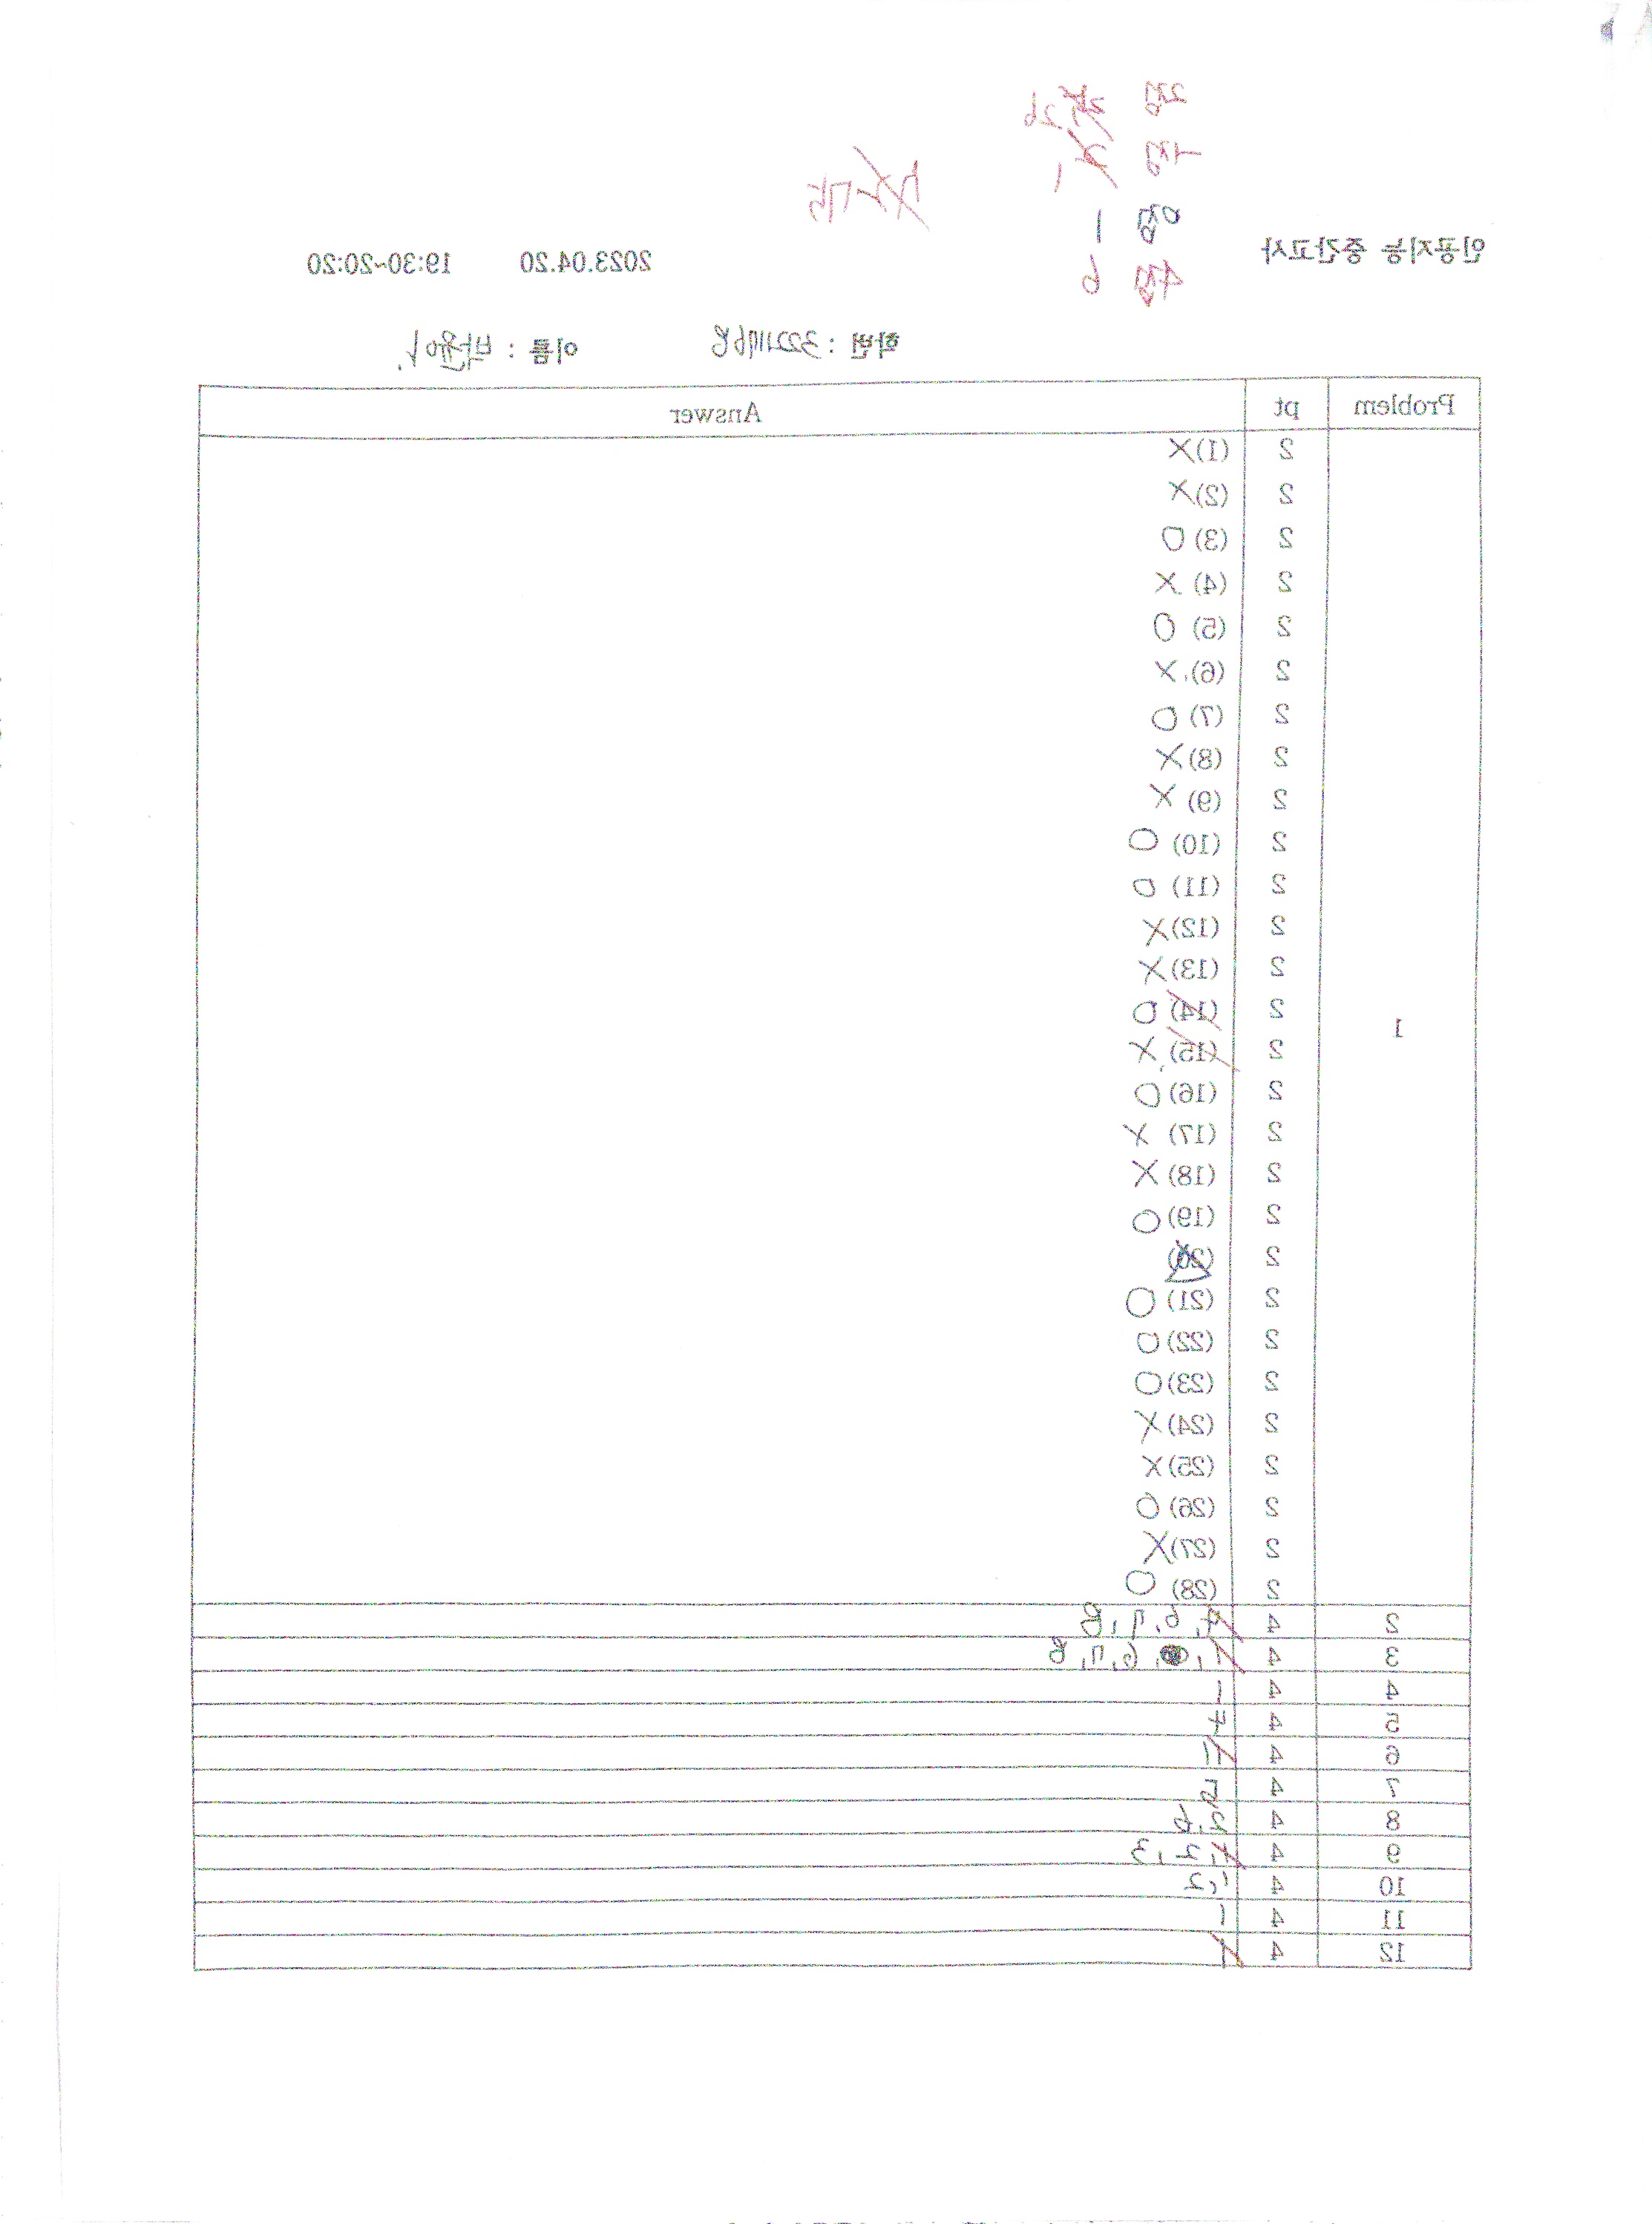 2점 26
1점 1
0점 1
4점 6
75
인공지능 중간고사 2023.04.20 19:30~20:20
학번 : 이름 : 박윤아
Problem pt Answer
1
2 (1) X
2 (2) X
2 (3) O
2 (4) X
2 (5) O
2 (6) X
2 (7) O
2 (8) X
2 (9) X
2 (10) O
2 (11) O
2 (12) X
2 (13) X
2 (14) O
2 (15) X
2 (16) O
2 (17) X
2 (18) X
2 (19) O
2 (20)
2 (21) O
2 (22) O
2 (23) O
2 (24) X
2 (25) X
2 (26) O
2 (27) X
2 (28) O
2 4 4, 6, 7, 8
3 4 1, 6, 7, 8
4 4 1
5 4 4
6 4 1
7 4 5
8 4 2, 6
9 4 1, 2, 3
10 4 1, 2
11 4 1
12 4 1